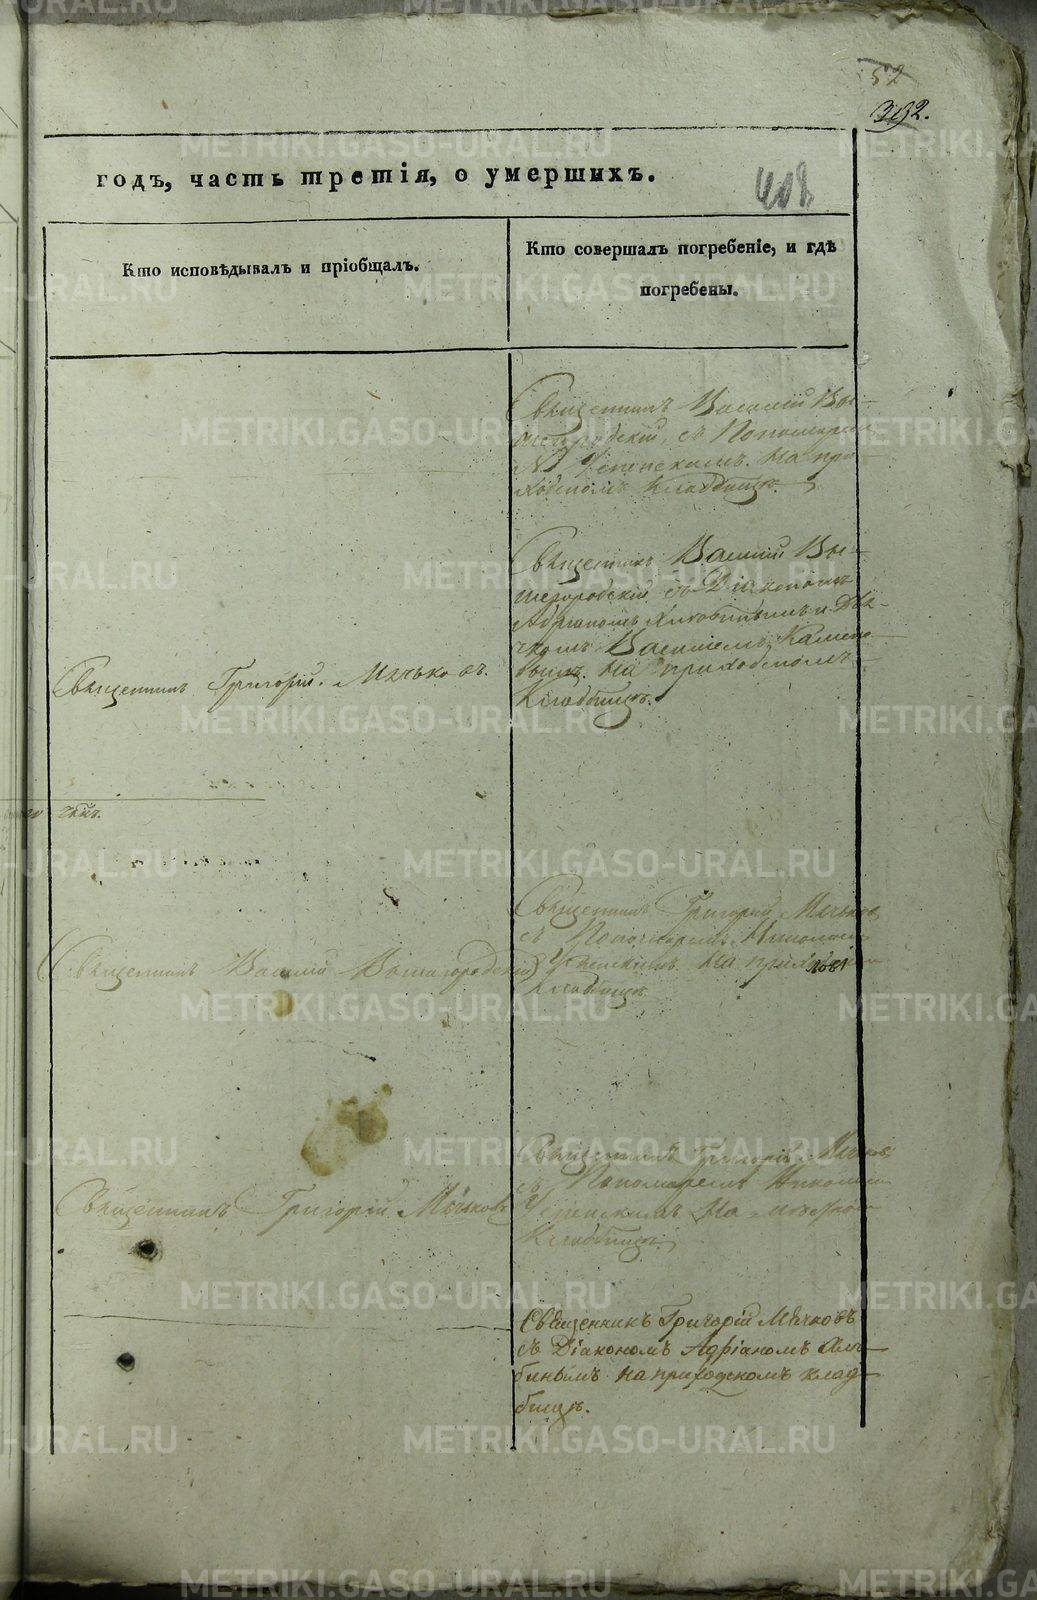 52
392.
408
годъ, часть третія, о умершихъ.
Кто исповѣдывалъ и пріобщалъ.
Кто совершалъ погребеніе, и гдѣ
погребены.
Священникъ Василій Вы-
шегородскій, съ Пономаремъ
Н. Успенскимъ. На при-
ходскомъ Кладбищѣ.
Священникъ Григорій Мячьковъ.
Священникъ Василій Вы-
шегородскій съ Діакономъ
Адріаномъ и Дья-
чкомъ Василіемъ Камено-
вымъ. На приходскомъ
Кладбищѣ.
Священникъ Василій Вышегородскій
Священникъ Григорій Мячьковъ
съ Пономаремъ Николаемъ
Успенскимъ На приходскомъ
Кладбищѣ
Священникъ Григорій Мячьковъ
Священникъ Григорій Мячьковъ
съ Пономаремъ Николаемъ
Успенскимъ На
Кладбищѣ.
Священникъ Григорій Мячковъ
съ Діакономъ Адріаномъ
бинымъ на приходскомъ клад-
бищѣ.
METRIKI.GASO-URAL.RU